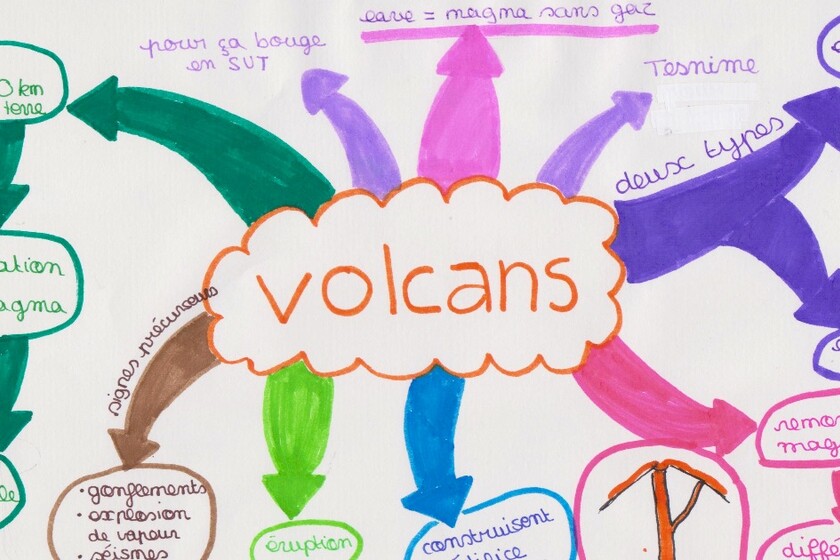 lave = magma sans gaz
pour ça bouge
en SUT
Tesnime
0 km
terre
deux types
ation
agma
volcans
signes précurseurs
remon
mag
• gonflements
• explosion
de vapeur
• séismes
éruption
construisent
édifice
diffé